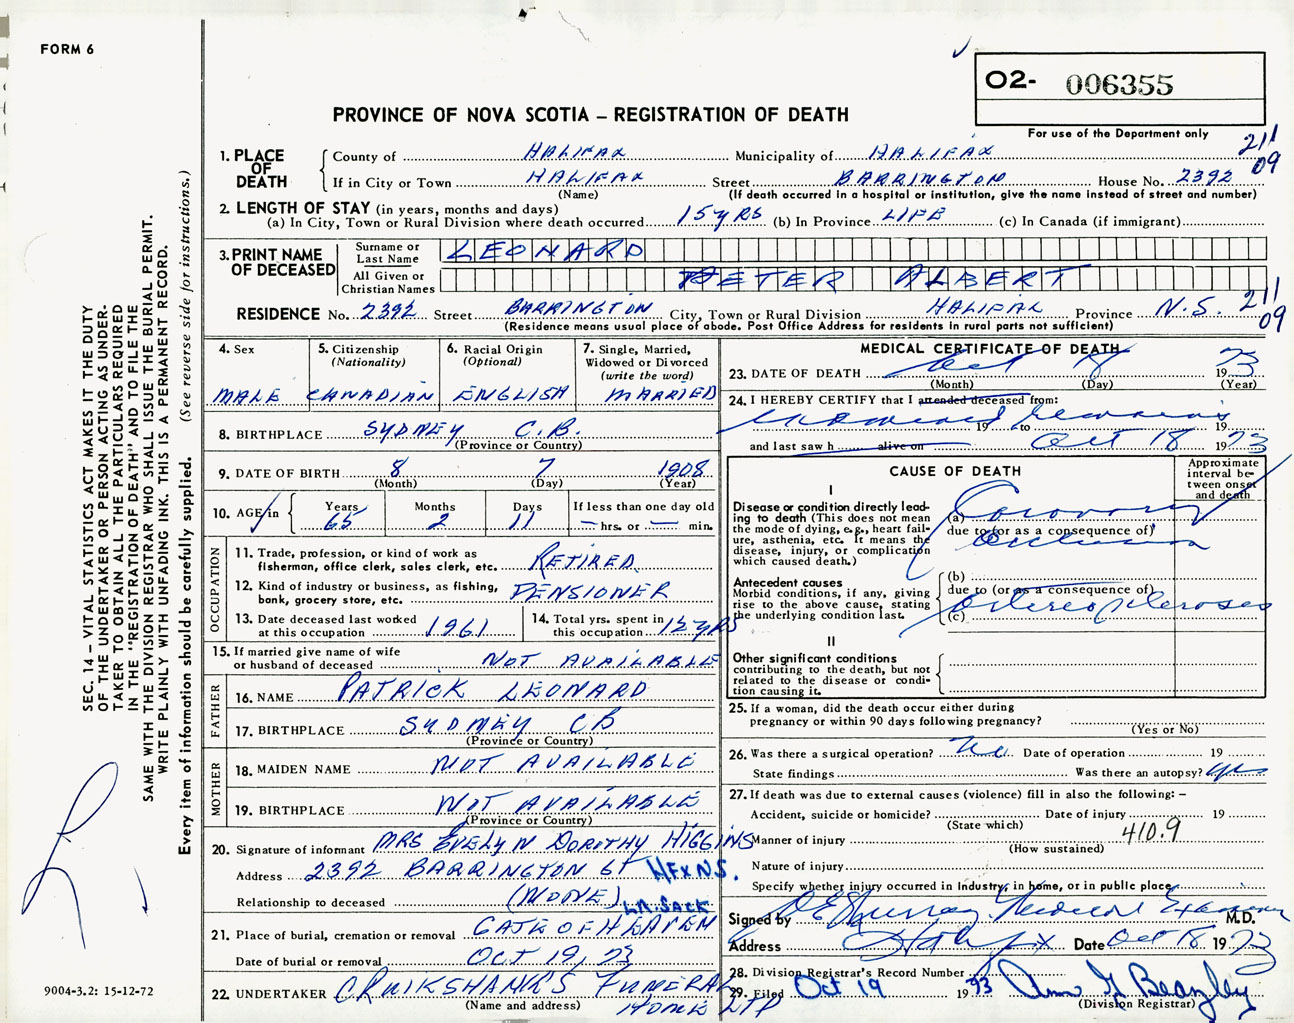 FORM 6
O2- 006355
For use of the Department only
PROVINCE OF NOVA SCOTIA – REGISTRATION OF DEATH
211
09
1. PLACE OF DEATH
County of HALIFAX Municipality of HALIFAX
If in City or Town HALIFAX Street BARRINGTON House No. 2392
(Name) (If death occurred in a hospital or institution, give the name instead of street and number)
2. LENGTH OF STAY (in years, months and days)
(a) In City, Town or Rural Division where death occurred 15 yrs (b) In Province LIFE (c) In Canada (if immigrant)
3. PRINT NAME OF DECEASED
Surname or Last Name LEONARD
All Given or Christian Names PETER ALBERT
RESIDENCE No. 2392 Street BARRINGTON City, Town or Rural Division HALIFAX Province N.S. 211
09
(Residence means usual place of abode. Post Office Address for residents in rural parts not sufficient)
4. Sex MALE
5. Citizenship (Nationality) CANADIAN
6. Racial Origin (Optional) ENGLISH
7. Single, Married, Widowed or Divorced (write the word) MARRIED
8. BIRTHPLACE SYDNEY C.B.
(Province or Country)
9. DATE OF BIRTH 8 7 1908
(Month) (Day) (Year)
10. AGE in Years 65 Months 2 Days 11 If less than one day old — hrs. or — min.
OCCUPATION
11. Trade, profession, or kind of work as fisherman, office clerk, sales clerk, etc. RETIRED
12. Kind of industry or business, as fishing, bank, grocery store, etc. PENSIONER
13. Date deceased last worked at this occupation 1961
14. Total yrs. spent in this occupation 12 yrs
15. If married give name of wife or husband of deceased NOT AVAILABLE
FATHER
16. NAME PATRICK LEONARD
17. BIRTHPLACE SYDNEY CB
(Province or Country)
MOTHER
18. MAIDEN NAME NOT AVAILABLE
19. BIRTHPLACE NOT AVAILABLE
(Province or Country)
20. Signature of informant MRS EVELYN DOROTHY HIGGINS
Address 2392 BARRINGTON ST HFX NS.
Relationship to deceased (NONE)
LR. SACK
21. Place of burial, cremation or removal GATE OF HEAVEN
Date of burial or removal OCT 19, 73
22. UNDERTAKER CRUIKSHANKS FUNERAL HOME LTD
(Name and address)
MEDICAL CERTIFICATE OF DEATH
23. DATE OF DEATH Oct 18 1973
(Month) (Day) (Year)
24. I HEREBY CERTIFY that I attended deceased from:
19 to 19
and last saw h alive on Oct 18 1973
CAUSE OF DEATH
Approximate interval between onset and death
I
Disease or condition directly leading to death (This does not mean the mode of dying, e.g., heart failure, asthenia, etc. It means the disease, injury, or complication which caused death.)
(a) Coronary
due to (or as a consequence of)
occlusion
Antecedent causes
Morbid conditions, if any, giving rise to the above cause, stating the underlying condition last.
(b)
due to (or as a consequence of)
(c)
II
Other significant conditions
contributing to the death, but not related to the disease or condition causing it.
25. If a woman, did the death occur either during pregnancy or within 90 days following pregnancy?
(Yes or No)
26. Was there a surgical operation? no Date of operation 19
State findings Was there an autopsy? yes
27. If death was due to external causes (violence) fill in also the following: –
Accident, suicide or homicide? Date of injury 19
(State which)
410.9
Manner of injury
(How sustained)
Nature of injury
Specify whether injury occurred in Industry, in home, or in public place
Signed by Murray Medical Examiner M.D.
Address Halifax Date Oct 18 1973
28. Division Registrar's Record Number
29. Filed Oct 19 1973 Ann Beazley
(Division Registrar)
SEC. 14 – VITAL STATISTICS ACT MAKES IT THE DUTY
OF THE UNDERTAKER OR PERSON ACTING AS UNDER-
TAKER TO OBTAIN ALL THE PARTICULARS REQUIRED
IN THE "REGISTRATION OF DEATH" AND TO FILE THE
SAME WITH THE DIVISION REGISTRAR WHO SHALL ISSUE THE BURIAL PERMIT.
WRITE PLAINLY WITH UNFADING INK. THIS IS A PERMANENT RECORD.
Every item of information should be carefully supplied. (See reverse side for instructions.)
9004-3.2: 15-12-72